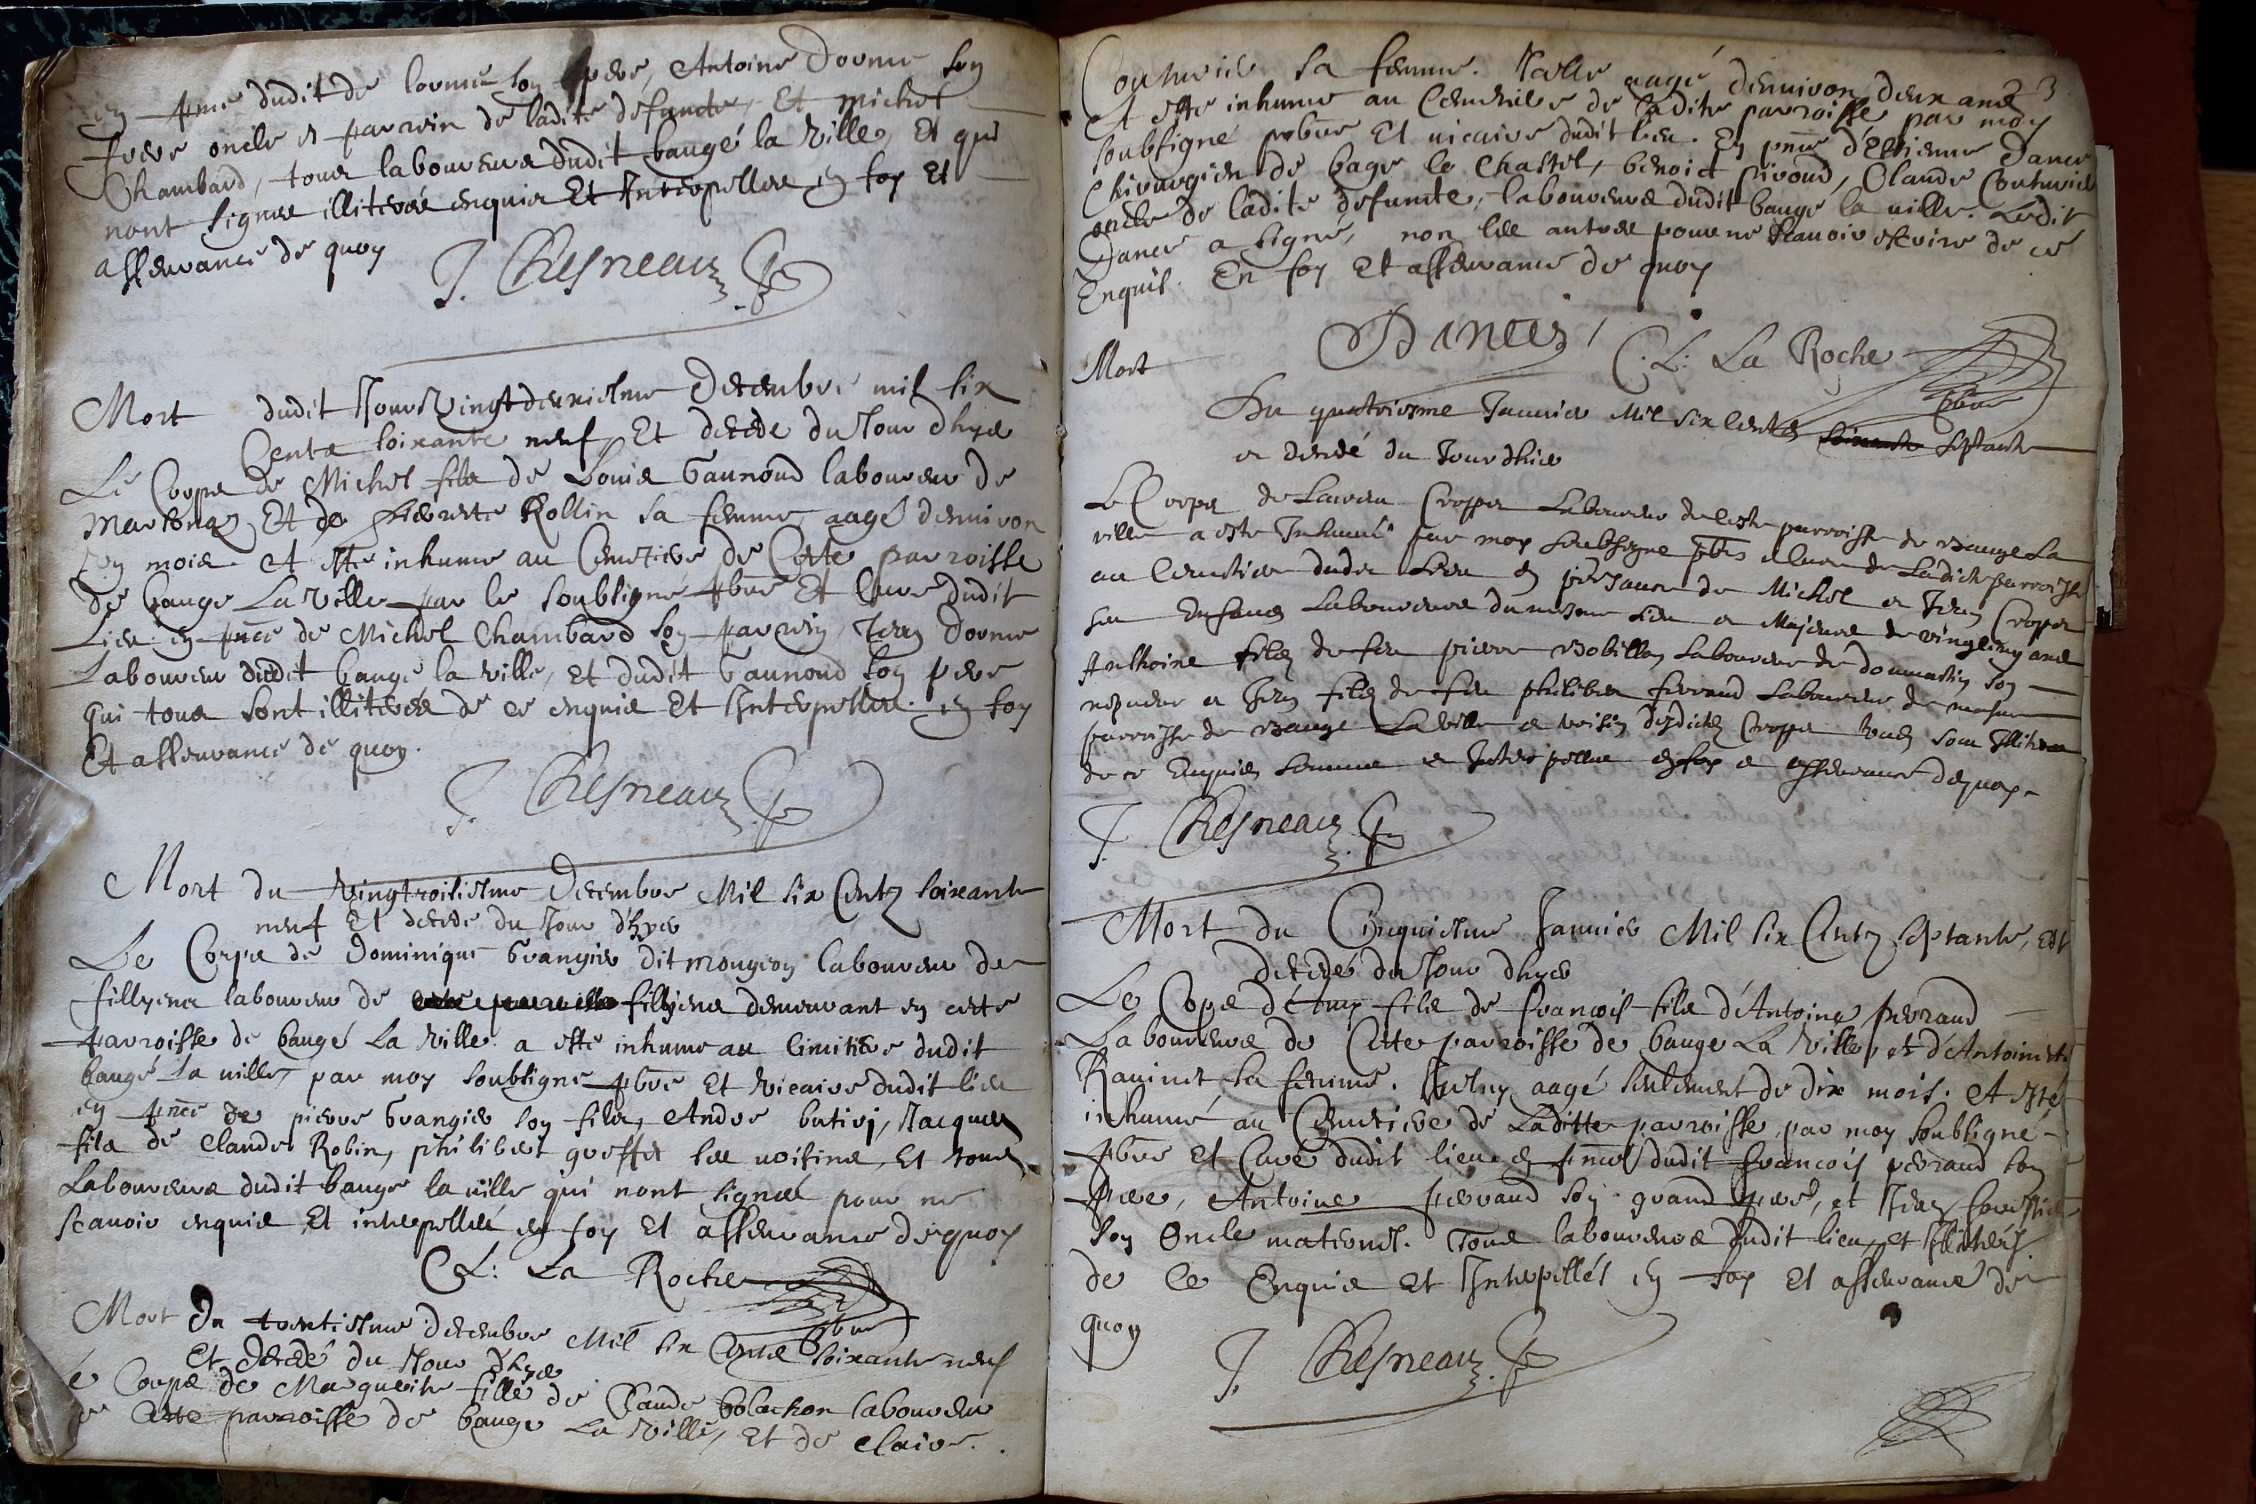 en pnce dudit de lorme son pere, Antoine Dorme son
frere oncle et parrein de ladite defuncte, Et michel
Chambard, tous laboureurs dudit baugé la ville, Et qui
nont signes illiterés enquis Et Interpelles en foy Et
asseurance de quoy
J. Chesneau
Mort dudit Jour Vingtdeuxiesme Decembre mil six
Cents soixante neuf, Et decede du Jour dhyer
Le Corps de Michel fils de Louis Gaunoud laboureur de
Et de Pierrette Rollin sa femme, aagé denuiron
un mois. A esté inhume au Cemetiere de Cette parroisse
de bauge La Ville par le soubsigné pbre Et Cure dudit
Lieu en pnce de Michel Chambard son parrein, Jean Dorme
Laboureur dudit bauge la ville, Et dudit Gaunoud son pere
qui tous sont illiterés de ce enquis Et Interpelles. en foy
Et asseurance de quoy.
J. Chesneau
Mort du Vingtroisiesme Decembre Mil six Centz soixante
neuf Et decede du Jour dhyer
Le Corps de Dominique Grangier dit mougeon laboureur de
fillyena laboureur de fillyena demeurant en cette
parroisse de baugé La Ville a esté inhume au Cimitiere dudit
baugé la ville, par moy soubsigne pbre Et vicaire dudit lieu
en pnce de pierre Grangier son fils, Andre, Jacques
fils de Claude Robin, philibert greffet ses voisins, Et tous
Laboureurs dudit bauge la ville qui nont signés pour ne
scauoir enquis Et interpellés en foy Et asseurance de quoy
C. L: La Roche
pbre
Mort Du trentiesme decembre Mil six Cents soixante neuf
Et Decedé du Jour dhyer
Le Corps de Marguerite fille de Claude bolachon laboureur
de Cette parroisse de bauge La Ville, Et de Claire.
23
Couturier sa femme. Icelle aagé denuiron deux ans
A esté inhume au Cemetiere de ladite parroisse par moy
soubsigné pbre Et vicaire dudit lieu. En pnce d'Estienne Dance
Chirurgien de bage le Chastel, benoict, Claude Couturier
oncle de ladite defuncte, laboureurs dudit bauge la ville. Ledit
Dance a signé, non les autres pour ne scauoir escrire de ce
Enquis. En foy Et asseurance de quoy
Dance C. L: La Roche
pbre
Mort
Du quatriesme Januier Mil six Cents soixante septante
et decedé du Jour dhier
Le Corps de Laurens Croppet Laboureur de ceste parroisse de Bauge La
ville a esté Inhumé par moy soubsigne pbre et Cure de Ladicte parroisse
au Cemetiere dudit Lieu en presance de Michel et Jean Croppet
ses Enfans Laboureurs du mesme Lieu et Majeurs de vingt cinq ans
Anthoine filz de feu pierre Robillon Laboureur de dommartin son
nepueur et Jean filz de feu philibert ferrand Laboureur de mesme
parroisse de Bauge La ville et voisin desdictz Croppet tous sont Illiteres
de ce Enquis somme et Interpelles en foy et asseurance de quoy.
J. Chesneau
Mort du Cinquiesme Januier Mil six Centz septante, Est
Decedé du Jour dhyer
Le Corps fils de françois fils d'Antoine perraud
Laboureurs de Cette parroisse de bauge La Ville, et d'Antoinette
Rauinet sa femme. Iceluy aagé seulement de dix mois. A esté
inhumé au Cemetiere de Laditte parroisse par moy soubsigné
pbre Et Curé dudit lieu en pnce dudit francois perraud son
pere, Antoine perraud son grand pere, et Jean
son Oncle maternel. Tous laboureurs dudit lieu, et Illiterés.
de Ce Enquis Et Interpellés en foy Et asseurance de
quoy
J. Chesneau